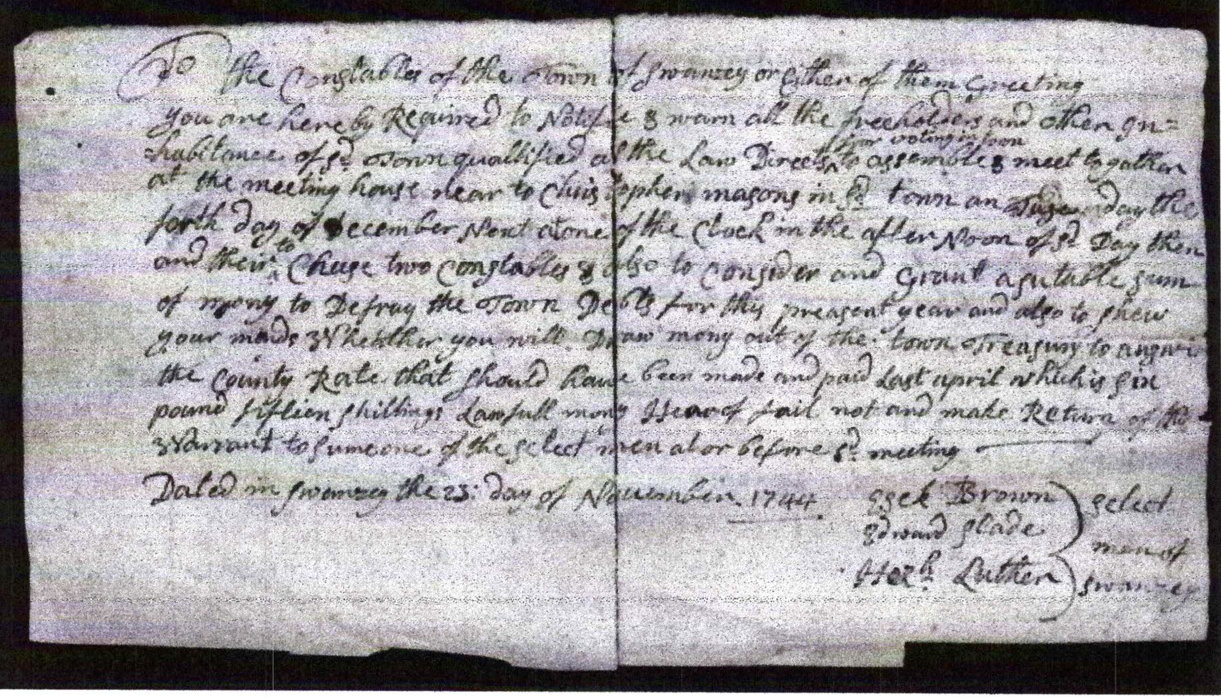 To the Constables of the Town of Swanzey or Either of them Greeting
You are hereby Required to Notifie & warn all the freeholders and other In=
for voting in
habitance of sd. Town quallified as the Law Directs ^ to assemble & meet togather
at the meeting house near to Christopher masons in sd. town on Tuse day the
forth day of December Next at one of the Clock in the after Noon of sd. Day then
and their ^to Chuse two Constables & also to Consider and Grant a sutable sum
of mony to Defray the Town Debts for this preasent year and also to shew
your minds Whethther you will Draw mony out of the town Treasury to answr
the County Rate that should have been made and paid Last april which is six
pound fifteen shillings Lawfull mony Hearof fail not and make Return of this
Warrant to sumeone of the select men at or before sd. meeting
Dated in swanzey the 23: day of November 1744.
Esek Brown
Edward Slade
Hezh. Luther
select
men of
swanzey